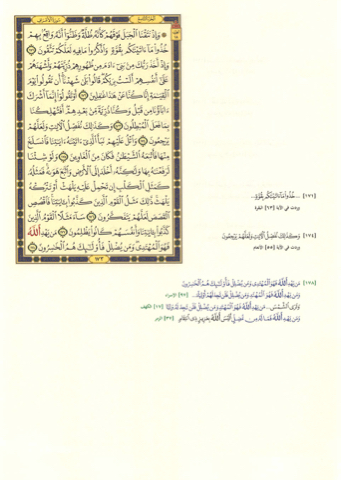 الجزء التاسع سورة الأعراف
۞ وَإِذْ نَتَقْنَا ٱلْجَبَلَ فَوْقَهُمْ كَأَنَّهُۥ ظُلَّةٌ وَظَنُّوٓا۟ أَنَّهُۥ وَاقِعٌۢ بِهِمْ
خُذُوا۟ مَآ ءَاتَيْنَٰكُم بِقُوَّةٍ وَٱذْكُرُوا۟ مَا فِيهِ لَعَلَّكُمْ تَتَّقُونَ ١٧١
وَإِذْ أَخَذَ رَبُّكَ مِنۢ بَنِىٓ ءَادَمَ مِن ظُهُورِهِمْ ذُرِّيَّتَهُمْ وَأَشْهَدَهُمْ
عَلَىٰٓ أَنفُسِهِمْ أَلَسْتُ بِرَبِّكُمْ قَالُوا۟ بَلَىٰ شَهِدْنَآ أَن تَقُولُوا۟ يَوْمَ
ٱلْقِيَٰمَةِ إِنَّا كُنَّا عَنْ هَٰذَا غَٰفِلِينَ ١٧٢ أَوْ تَقُولُوٓا۟ إِنَّمَآ أَشْرَكَ
ءَابَآؤُنَا مِن قَبْلُ وَكُنَّا ذُرِّيَّةً مِّنۢ بَعْدِهِمْ أَفَتُهْلِكُنَا
بِمَا فَعَلَ ٱلْمُبْطِلُونَ ١٧٣ وَكَذَٰلِكَ نُفَصِّلُ ٱلْءَايَٰتِ وَلَعَلَّهُمْ
يَرْجِعُونَ ١٧٤ وَٱتْلُ عَلَيْهِمْ نَبَأَ ٱلَّذِىٓ ءَاتَيْنَٰهُ ءَايَٰتِنَا فَٱنسَلَخَ
مِنْهَا فَأَتْبَعَهُ ٱلشَّيْطَٰنُ فَكَانَ مِنَ ٱلْغَاوِينَ ١٧٥ وَلَوْ شِئْنَا
لَرَفَعْنَٰهُ بِهَا وَلَٰكِنَّهُۥٓ أَخْلَدَ إِلَى ٱلْأَرْضِ وَٱتَّبَعَ هَوَىٰهُ فَمَثَلُهُۥ
كَمَثَلِ ٱلْكَلْبِ إِن تَحْمِلْ عَلَيْهِ يَلْهَثْ أَوْ تَتْرُكْهُ
يَلْهَث ذَّٰلِكَ مَثَلُ ٱلْقَوْمِ ٱلَّذِينَ كَذَّبُوا۟ بِـَٔايَٰتِنَا فَٱقْصُصِ
ٱلْقَصَصَ لَعَلَّهُمْ يَتَفَكَّرُونَ ١٧٦ سَآءَ مَثَلًا ٱلْقَوْمُ ٱلَّذِينَ
كَذَّبُوا۟ بِـَٔايَٰتِنَا وَأَنفُسَهُمْ كَانُوا۟ يَظْلِمُونَ ١٧٧ مَن يَهْدِ ٱللَّهُ
فَهُوَ ٱلْمُهْتَدِى وَمَن يُضْلِلْ فَأُو۟لَٰٓئِكَ هُمُ ٱلْخَٰسِرُونَ ١٧٨
١٧٣
[١٧١] ... خُذُوا۟ مَآ ءَاتَيْنَٰكُم بِقُوَّةٍ...
وردت في الآية [٦٣] البقرة
[١٧٤] وَكَذَٰلِكَ نُفَصِّلُ ٱلْءَايَٰتِ وَلَعَلَّهُمْ يَرْجِعُونَ
وردت في الآية [٥٥] الأنعام
[١٧٨] مَن يَهْدِ ٱللَّهُ فَهُوَ ٱلْمُهْتَدِى وَمَن يُضْلِلْ فَأُو۟لَٰٓئِكَ هُمُ ٱلْخَٰسِرُونَ
وَمَن يَهْدِ ٱللَّهُ فَهُوَ ٱلْمُهْتَدِ وَمَن يُضْلِلْ فَلَن تَجِدَ لَهُمْ أَوْلِيَآءَ... [٩٧] الإسراء
وَتَرَى ٱلشَّمْسَ... مَن يَهْدِ ٱللَّهُ فَهُوَ ٱلْمُهْتَدِ وَمَن يُضْلِلْ فَلَن تَجِدَ لَهُۥ وَلِيًّا [١٧] الكهف
وَمَن يَهْدِ ٱللَّهُ فَمَا لَهُۥ مِن مُّضِلٍّ أَلَيْسَ ٱللَّهُ بِعَزِيزٍ ذِى ٱنتِقَامٍ [٣٧] الزمر